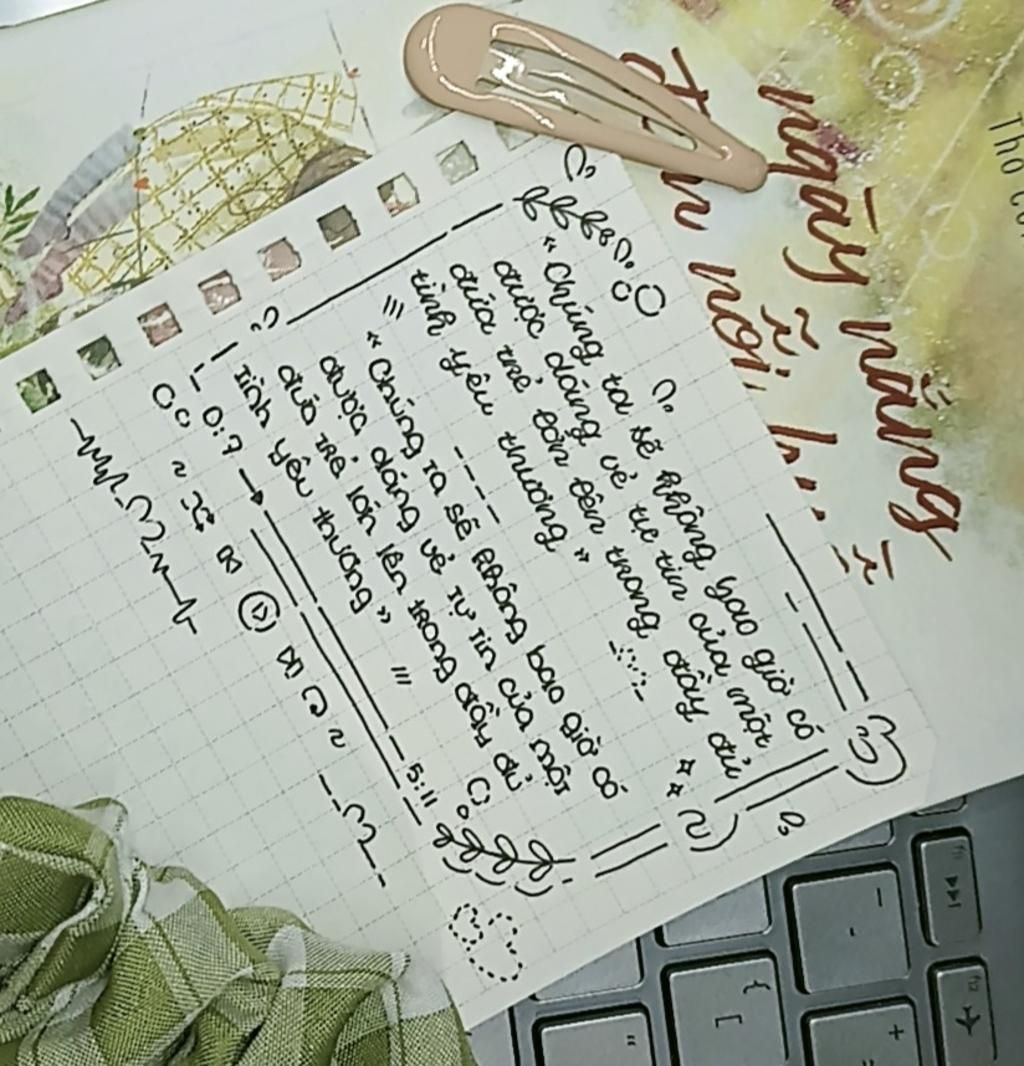 ngày nắng
Tho
"Chúng ta sẽ không bao giờ có
được dáng vẻ tự tin của một
đứa trẻ lớn lên trong đầy đủ
tình yêu thương"
"Chúng ta sẽ không bao giờ có
được dáng vẻ tự tin của một
đứa trẻ lớn lên trong đầy đủ
tình yêu thương"
0:7
5:11